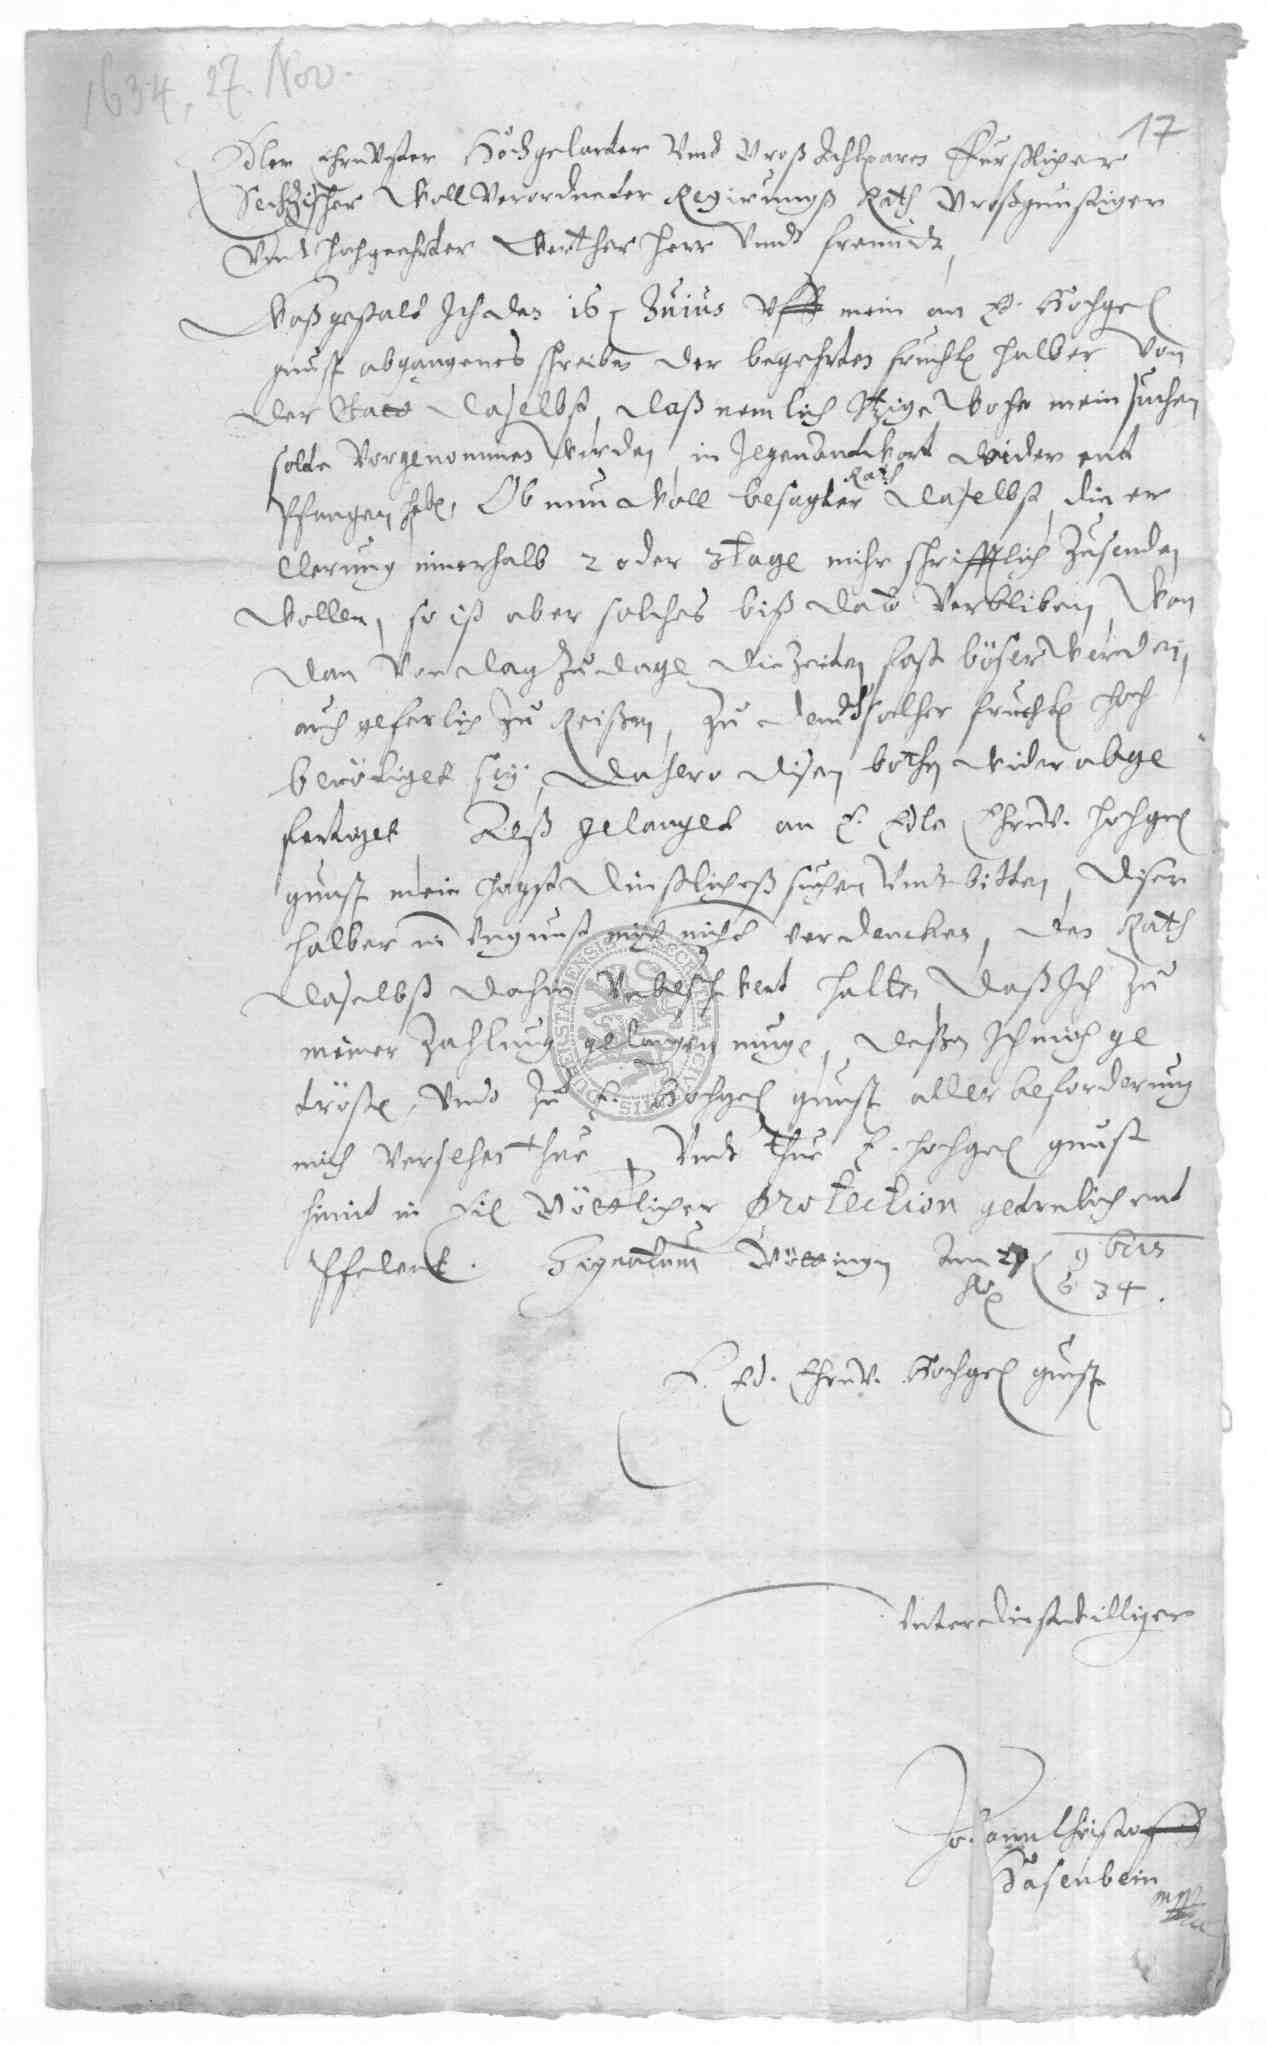 1634, 27. Nov.
17
Edler Ehrnvester Hochgelarter Vnd Groß Achtparer Furstlicher
Sechsischer Woll Verordneter Regirungß Rath Großgunstiger
Vnd hochgeehrter Werther Herr Vnd freundt,
Waßgestalt Ich den 16 Junius Vff mein an E. Hochgel
gunst abgangenes schreiben der begehrten frucht halber von
der Stadt daselbst, daß nemlich Itzige Woche mein suchen
solte Vorgenommen Werden, in Jegenantwort wider ent
pfangen habe, Ob nun Woll besagter Rath daselbst, die er
clerung innerhalb 2 oder 3 tage mihr schrifftlich Zusenden
Wollen, so ist aber solches biß dato Verbliben, Wan
dan Von dag Zu dage die Zeiten fast böser Werden,
auch geferlich Zu Reißen, Zu dem solcher frucht hoch
benötiget sey, dahero disen bothen wider abge
fertiget Alß gelanget an E. Edle Ehrnv. hochgel
gunst mein hogst dinstlicheß suchen Vndt bitten, diser
halber in Vngunst mich nicht verdencken, den Rath
daselbst dahin halten, daß Ich Zu
meiner Zahlung gelangen muge, deßen Ich mich ge
tröste, Vndt Zu E. Hochgel gunst aller beforderung
mich versehen thue, Vndt thue E. hochgel gunst
himit in Göttlicher protection getreulich ent
pfelent. Signatum Göttingen den 27 9bris
Ao 634.
E. Ed. Ehrnv. Hochgel gunst
Unterdinstwilliger
Johann Christoff
Hasenbein
mpp